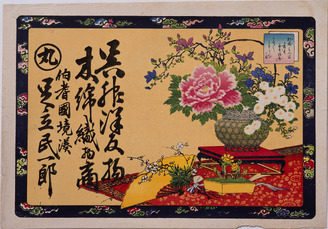 呉服洋反物
木綿織物商
伯耆國境港
丸 足立民一郎